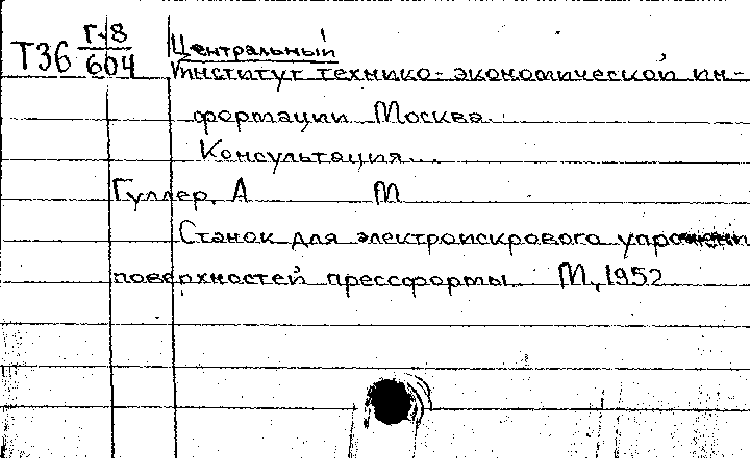 Г.8
Т36 604
Центральный
Институт технико-экономической ин-
формации Москва.
Консультация...
Гуллер, А М
Станок для электроискрового
поверхностей прессформы М, 1952